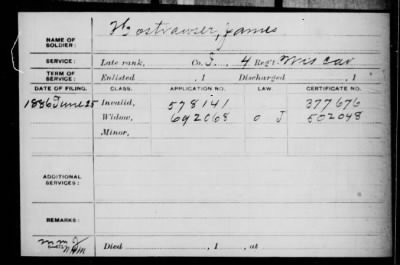 NAME OF SOLDIER: Hostrawser, James
SERVICE: Late rank, Co. I, 4 Reg't Wis Cav
TERM OF SERVICE: Enlisted , 1 Discharged , 1
DATE OF FILING. CLASS. APPLICATION NO. LAW CERTIFICATE NO.
1886 June 25 Invalid, 578141 377676
Widow, 692068 O J 502048
Minor,
ADDITIONAL SERVICES:
REMARKS:
Died , 1 , at